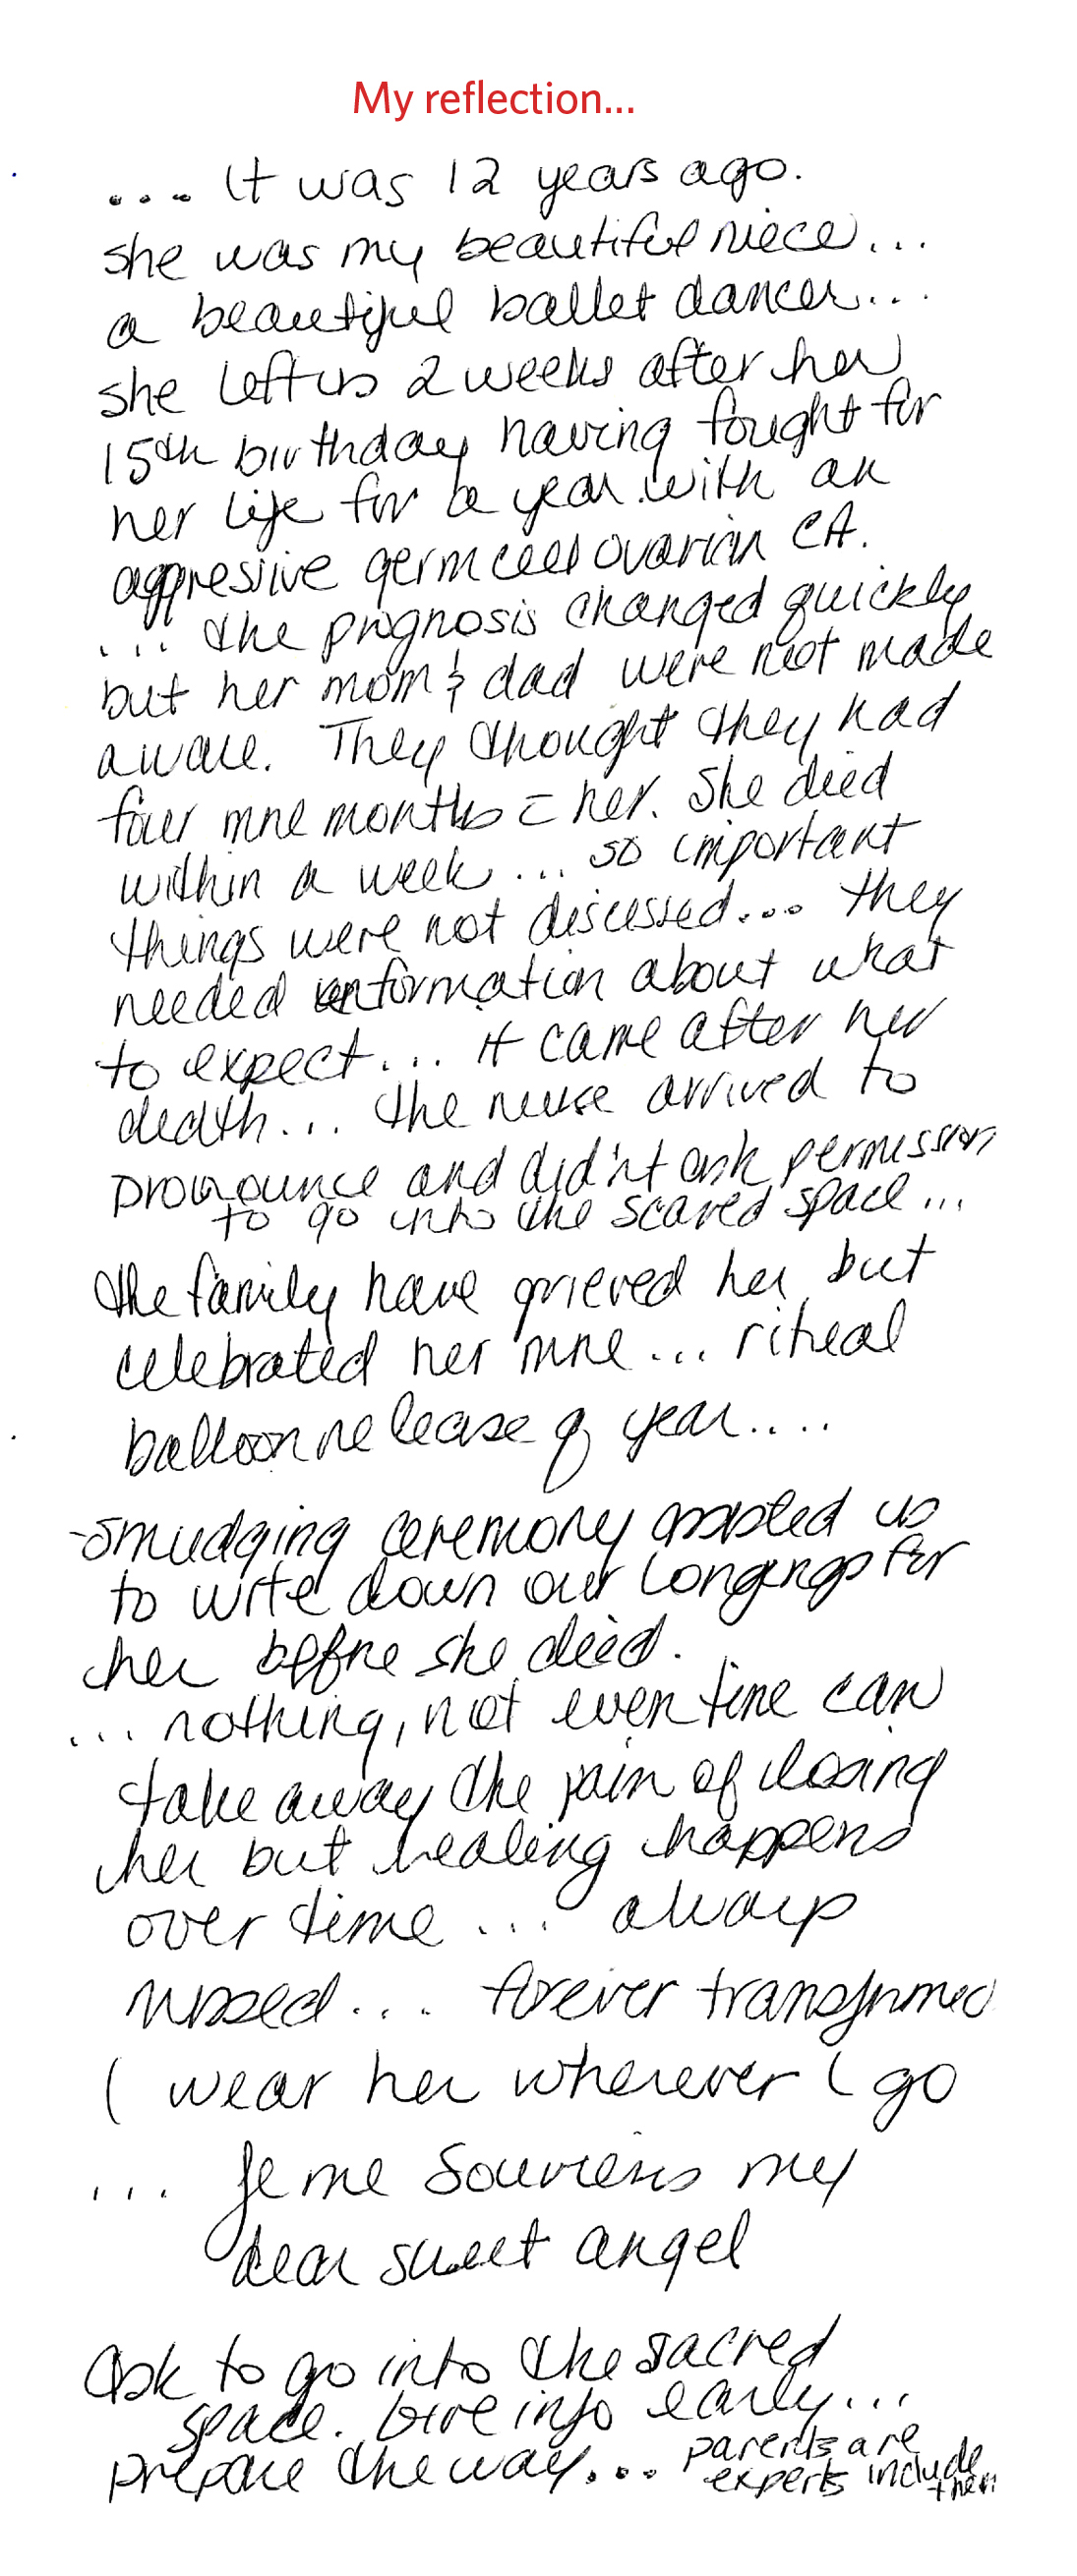 My reflection...
.... It was 12 years ago.
she was my beautiful niece...
a beautiful ballet dancer...
she left us 2 weeks after her
15th birthday having fought for
her life for a year with an
aggressive germ cell ovarian CA.
... the prognosis changed quickly
but her mom & dad were not made
aware. They thought they had
four more months c̄ her. She died
within a week... so important
things were not discussed... they
needed information about what
to expect... it came after her
death... the nurse arrived to
pronounce and didn't ask permission
to go into the scared space...
the family have grieved her but
celebrated her more... ritual
balloon release q year....
-Smudging ceremony assisted us
to write down our longings for
her before she died.
... nothing, not even time can
take away the pain of losing
her but healing happens
over time... always
missed... forever transformed
I wear her wherever I go
... Je me Souviens my
dear sweet angel
Ask to go into the sacred
space. Give info early...
prepare the way... parents are
experts include
them